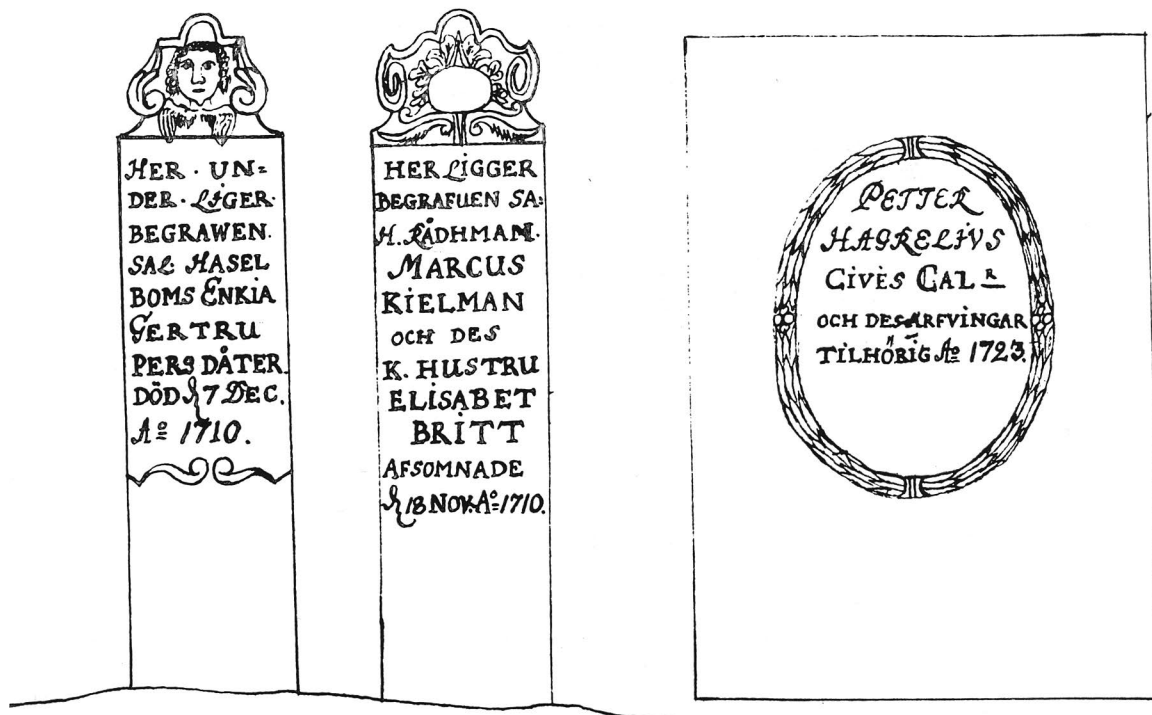 HER · UN=
DER · LIGER ·
BEGRAWEN.
SAL HASEL
BOMS ENKIA
GERTRU
PERS DÅTER
DÖD D 7 DEC.
Aº 1710.
HER LIGGER
BEGRAFUEN SA:
H. RÅDHMAN.
MARCUS
KIELMAN
OCH DES
K. HUSTRU
ELISABET
BRITT
AFSOMNADE
D 18 NOV. Aº 1710.
PETTER
HAGRELIVS
CIVÈS CAL R
OCH DES ARFVINGAR
TILHÖRIG Aº 1723.